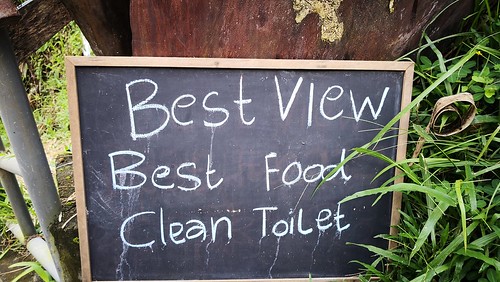 Best View
Best Food
Clean Toilet